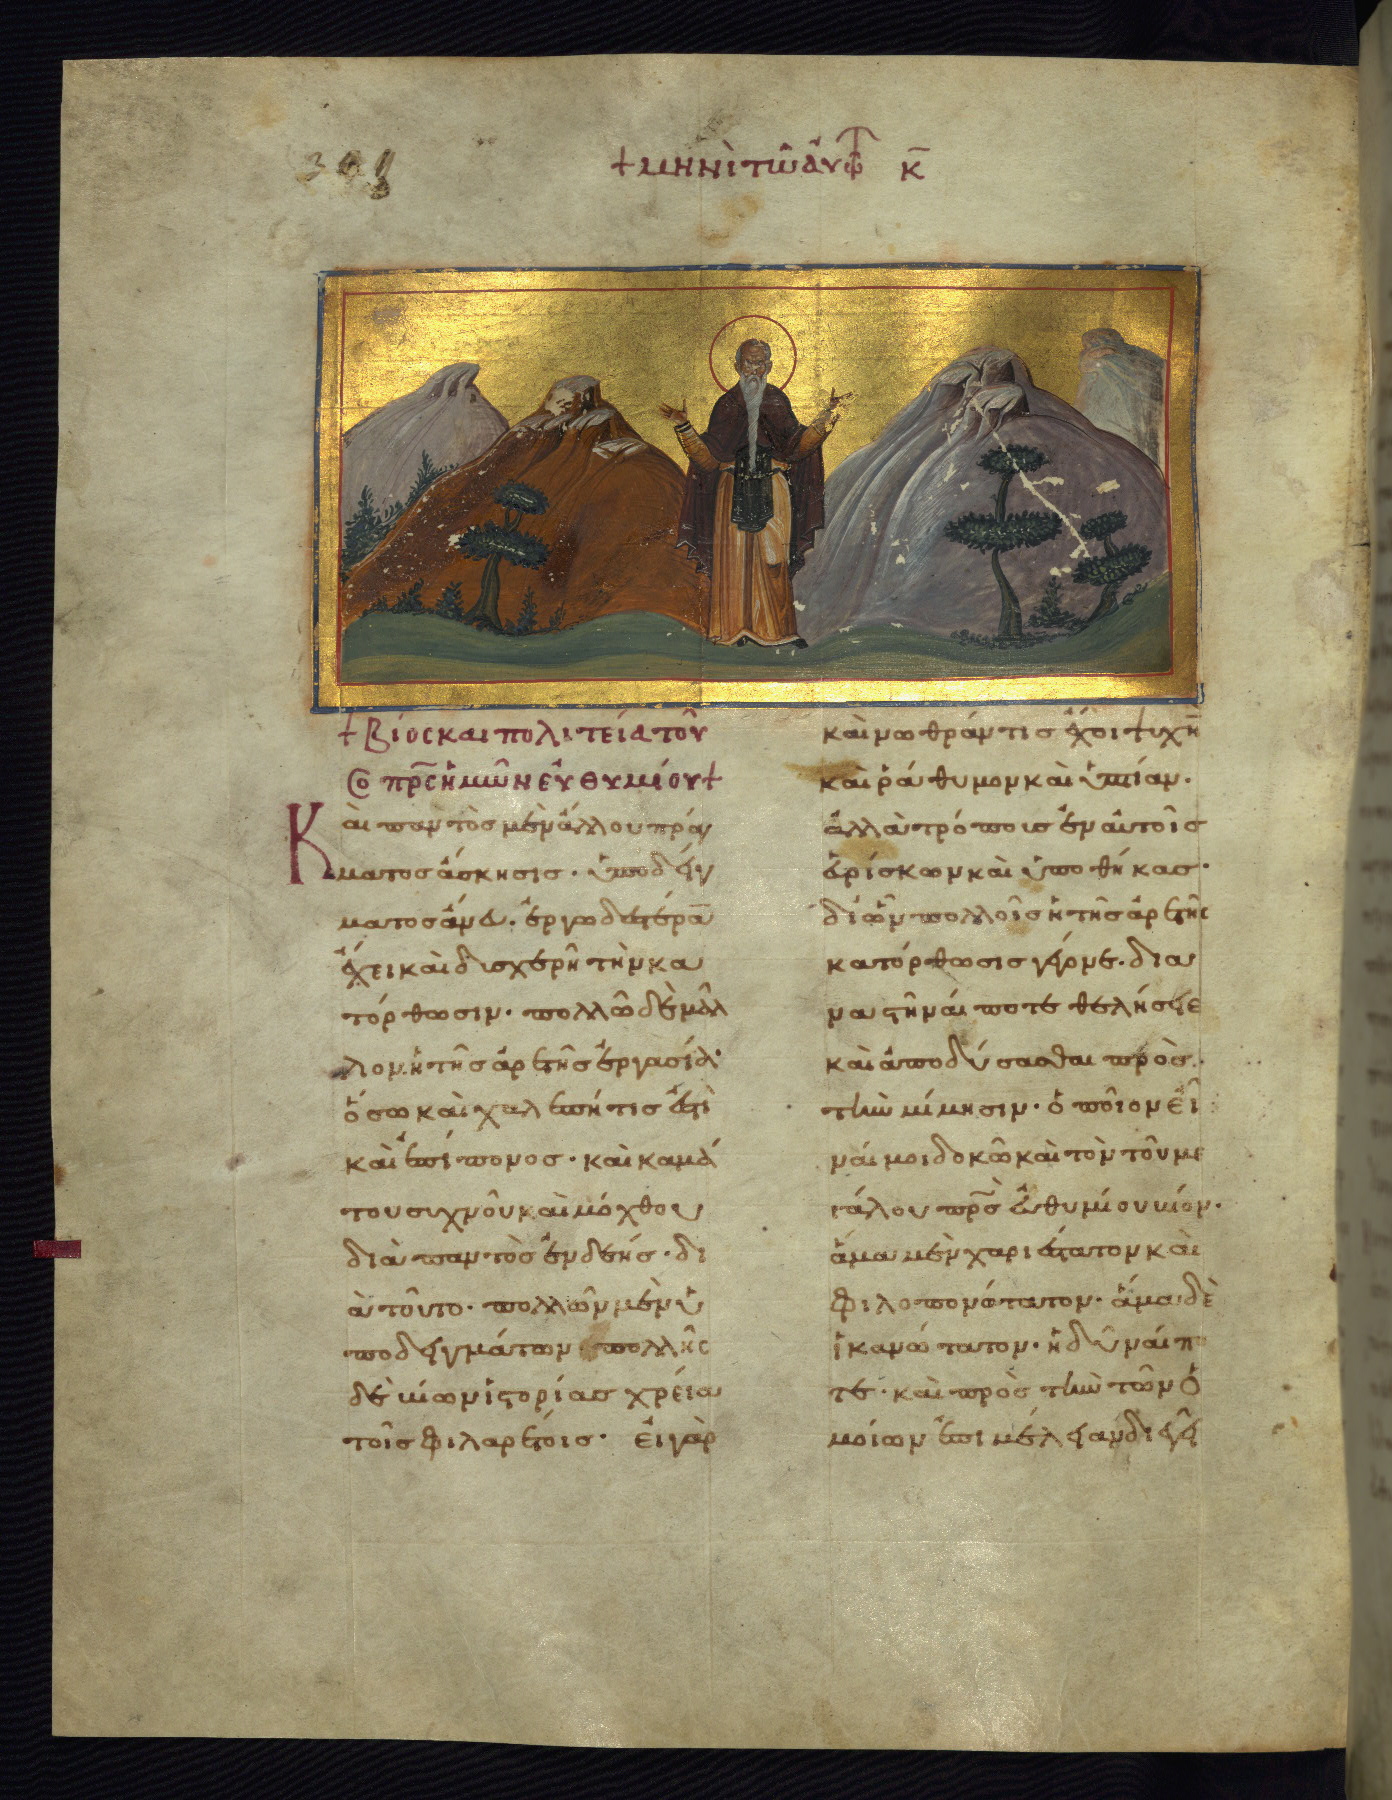 + μηνὶ τῶ αὐτῶ κ̅
+ Βίος και πολιτεία τοῦ
ὁσ π̅ρ̅ς̅ ἡμῶν εὐθυμίου +
Και παντὸς μὲν ἄλλου πράγ
ματος ἄσκησις· ὑποδείγ
ματος ἄνευ· ἐργωδεστέραν
ἔχει καὶ δυσχερῆ τὴν κα
τόρθωσιν· πολλῶ δὲ μᾶλ
λον ἡ τῆς ἀρετῆς ἐργασία·
ὅσω καὶ χαλεπή τίς ἐστι
καὶ ἐπίπονος· καὶ καμά
του συχνοῦ καὶ μόχθου
διὰ παντὸς ἐνδεής· δι
ὰ τοῦτο· πολλῶν μὲν ὑ
ποδειγμάτων· πολλῆς
δὲ βίων ἱστορίας χρεία
τοῖς φιλαρέτοις· Εἰ γὰρ
καὶ νωθράν τις ἔχοι ψυχὴν
καὶ ῥάθυμον καὶ ὑπτίαν·
ἀλλὰ τρόπους ἐν αὐτοῖς
εὑρίσκων καὶ ὑποθήκας·
δι' ὧν πολλοῖς ἡ τῆς ἀρετῆς
κατόρθωσις γέγονε· δια
ναστῆναί ποτε θελήσειε
καὶ ἀποδύσασθαι πρὸς
τὴν μίμησιν· ὁποῖον εἶ
ναί μοι δοκῶ καὶ τὸν τοῦ με
γάλου π̅ρ̅ς̅ εὐθυμίου βίον·
ἅμα μὲν χαριέστατον καὶ
φιλοπονώτατον· ἅμα δὲ
ἱκανώτατον· ἡδῦναί π
τε· καὶ πρὸς τὴν τῶν ὁ
μοίων ἐπιμέλειαν διεγεῖ